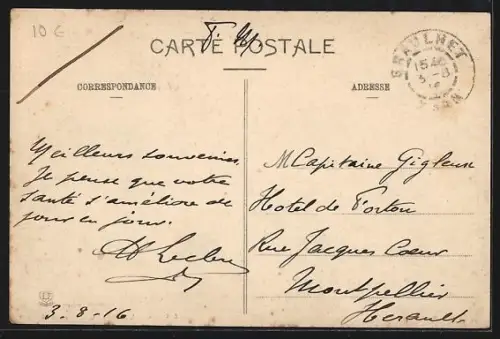 10 €
F. M.
CARTE POSTALE
CORRESPONDANCE
ADRESSE
GRAULHET
15 40
3 - 8
16
TARN
Meilleurs souvenirs.
Je pense que votre
santé s'améliore de
jour en jour.
3. 8. 16
M Capitaine
Hotel de
Rue Jacques Coeur
Montpellier
Herault